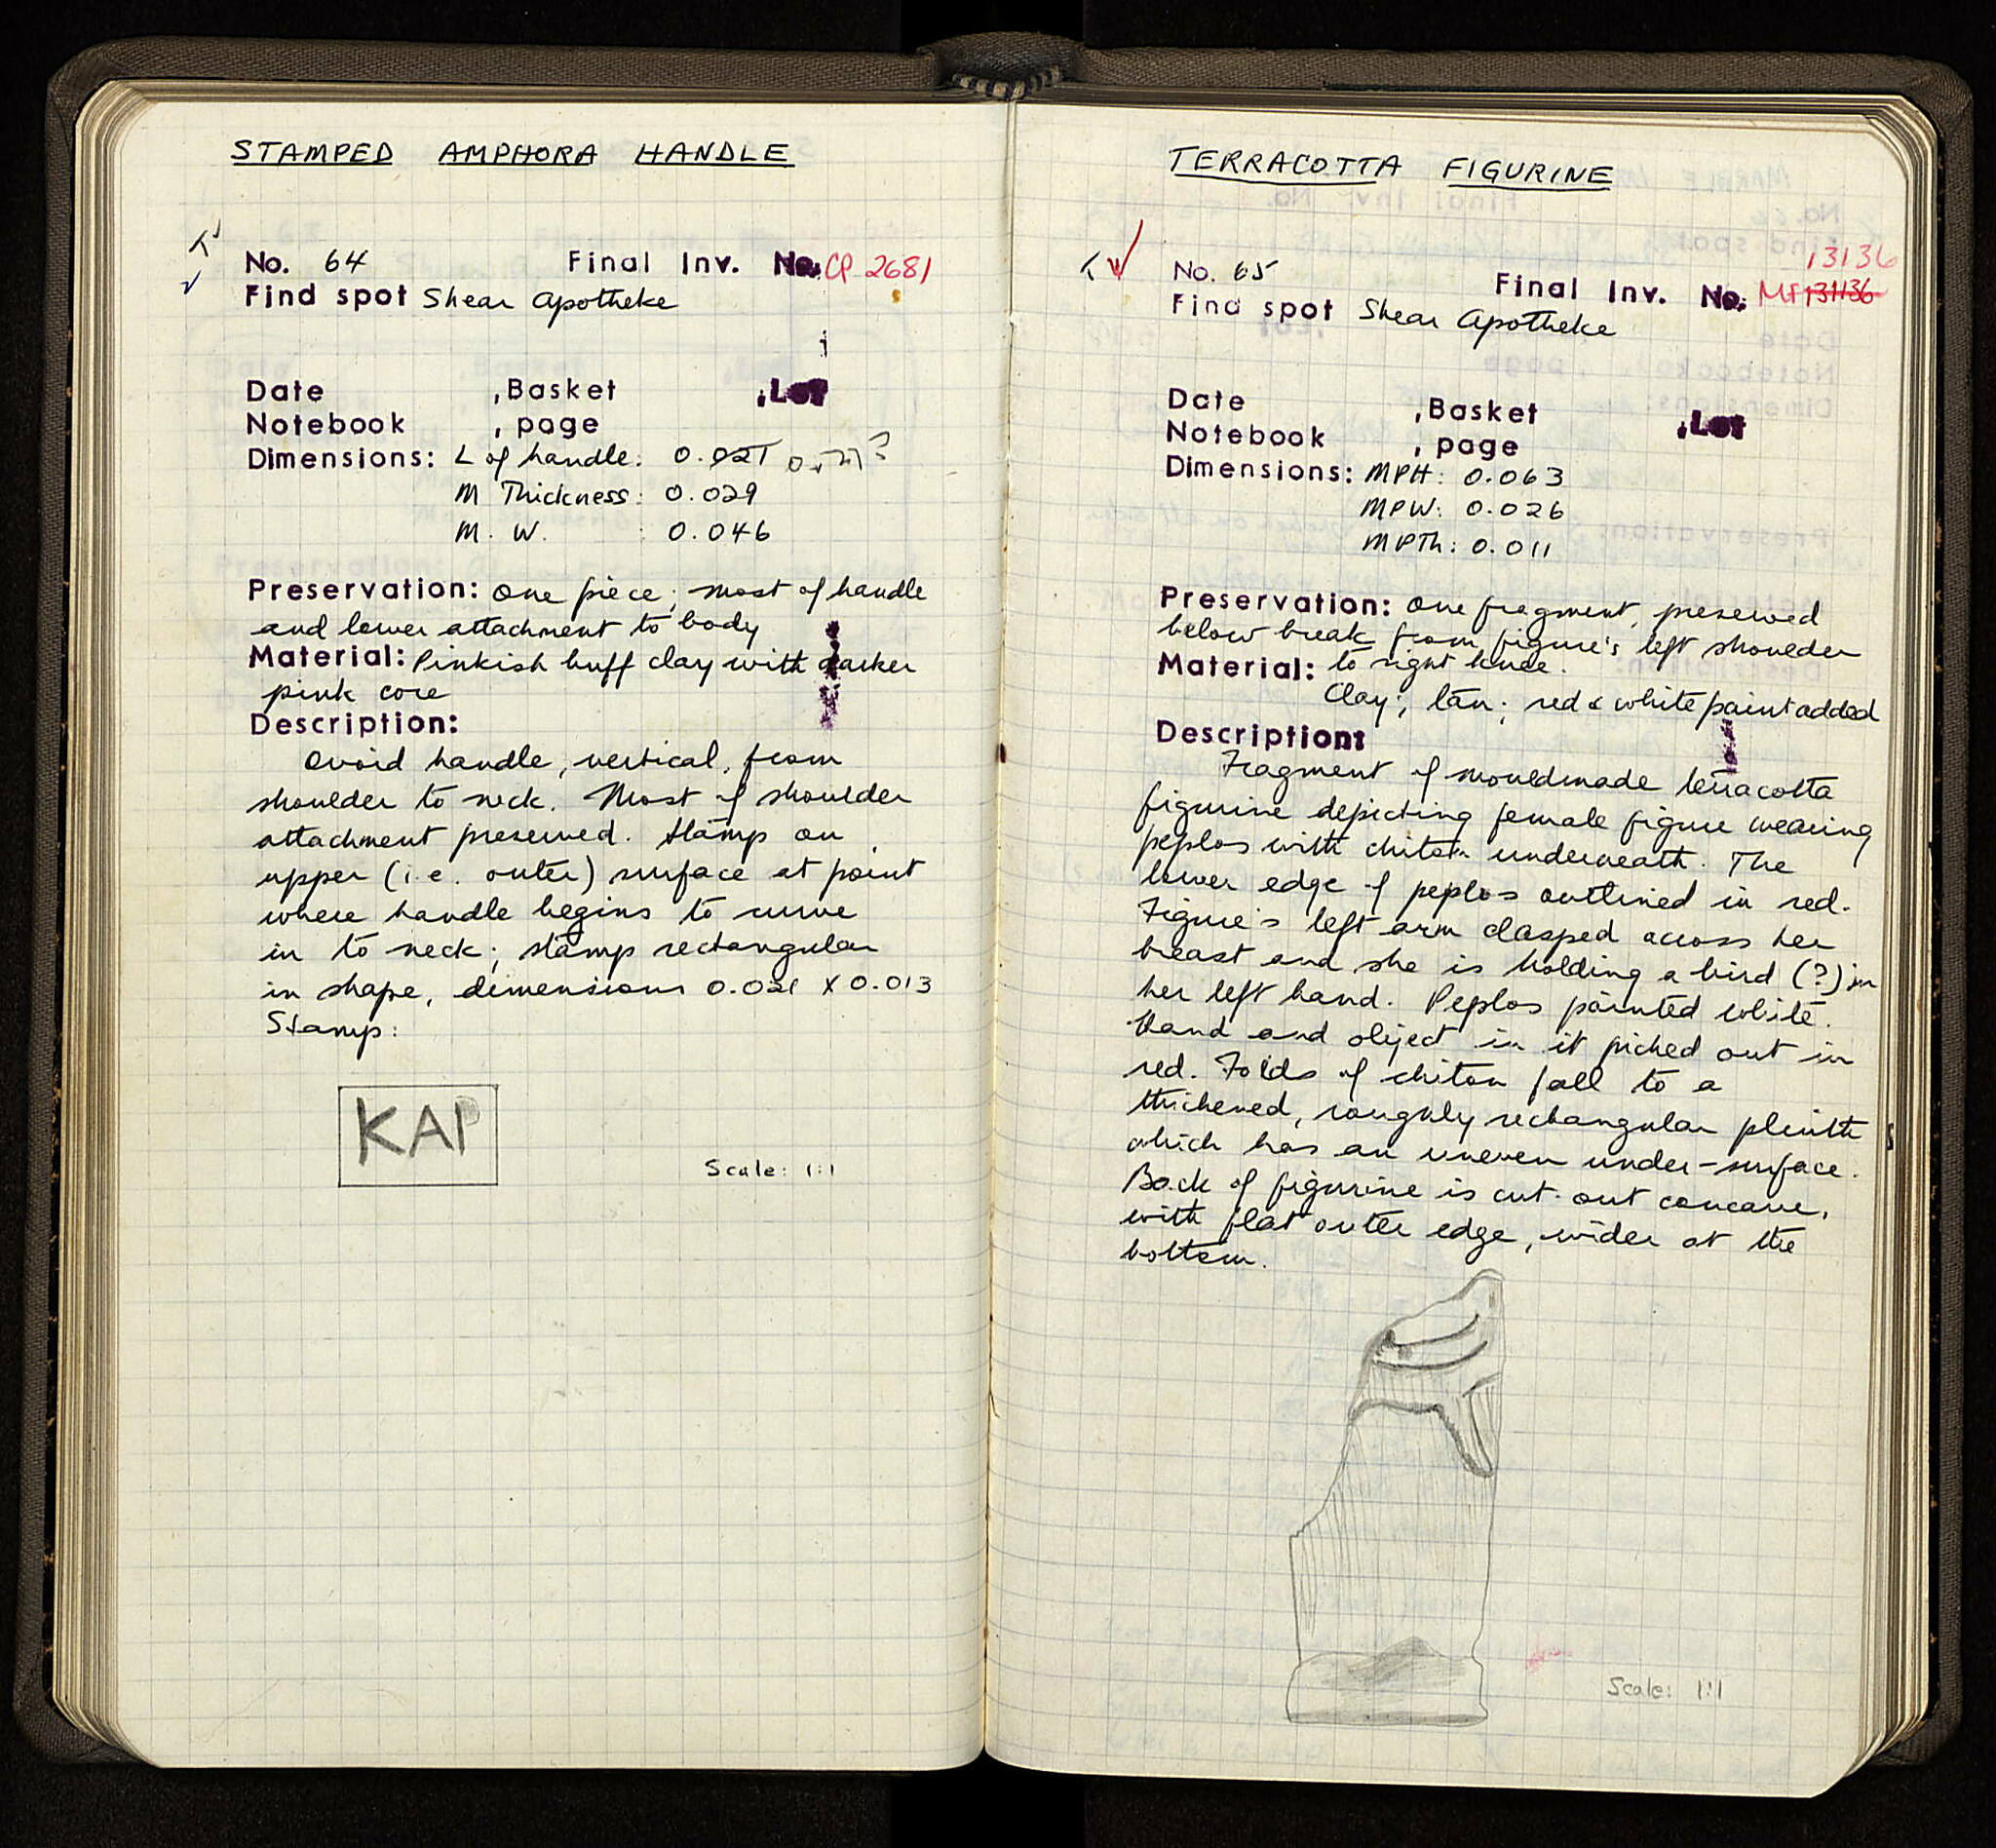 STAMPED AMPHORA HANDLE
No. 64 Final Inv. No. CP 2681
Find spot Shear Apotheke
Date , Basket , Lot
Notebook , page
Dimensions: L of handle:
M Thickness: 0.029
M. W. : 0.046
Preservation: One piece; most of handle
and lower attachment to body
Material: Pinkish buff clay with darker
pink core
Description:
Ovoid handle, vertical, from
shoulder to neck. Most of shoulder
attachment preserved. Stamp on
upper (i.e. outer) surface at point
where handle begins to curve
in to neck; stamp rectangular
in shape, dimensions 0.021 X 0.013
Stamp:
KAP
Scale: 1:1
TERRACOTTA FIGURINE
13136
No. 65 Final Inv. No. MF 131136
Find spot Shear Apotheke
Date , Basket , Lot
Notebook , page
Dimensions: MPH: 0.063
MPW: 0.026
MPTh: 0.011
Preservation: One fragment, preserved
below break from figure's left shoulder
Material: to right knee.
Clay; tan; red & white paint added
Description:
Fragment of mouldmade terracotta
figurine depicting female figure wearing
peplos with chiton underneath. The
lower edge of peplos outlined in red.
Figure's left arm clasped across her
breast and she is holding a bird (?) in
her left hand. Peplos painted white.
Hand and object in it picked out in
red. Folds of chiton fall to a
thickened, roughly rectangular plinth
which has an uneven under-surface.
Back of figurine is cut out concave,
with flat outer edge, wider at the
bottom.
Scale: 1:1